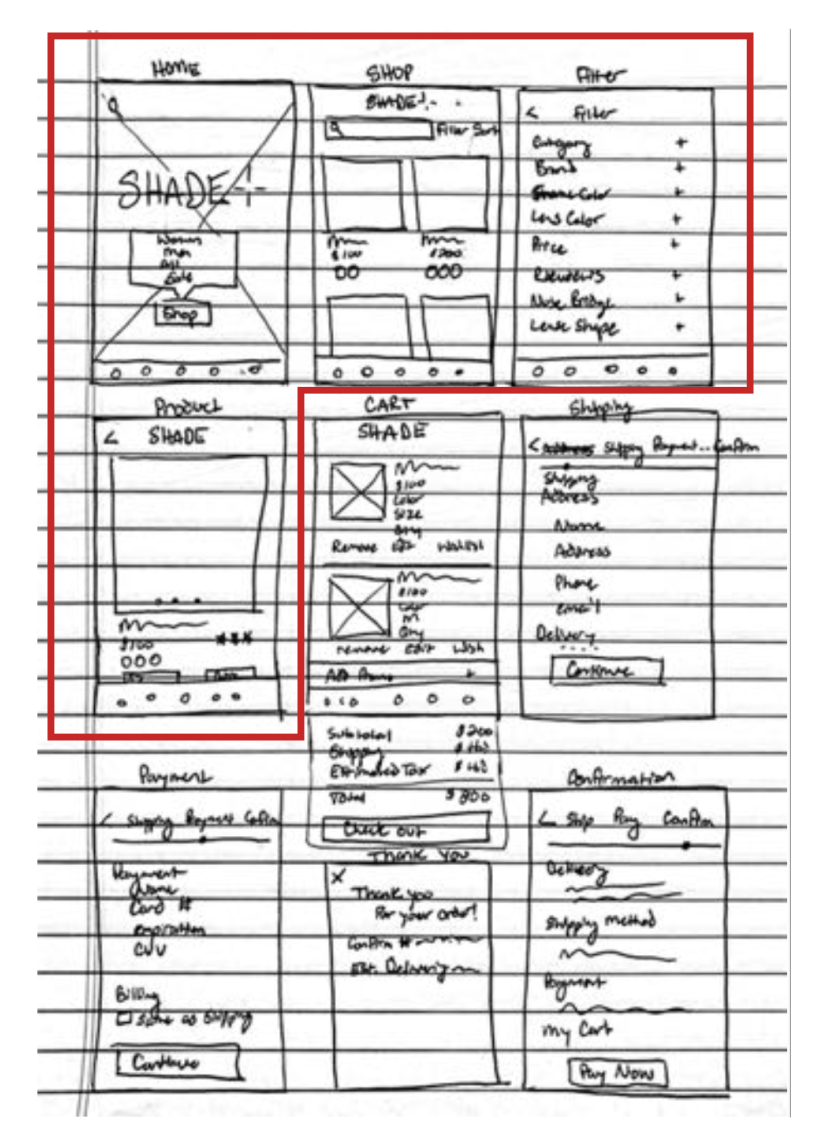 HOME
SHADE
Women
Men
All
Sale
Shop
SHOP
SHADE
Filter Sort
$100 $200
Filter
< Filter
Category +
Brand +
Frame Color +
Lens Color +
Price +
Reviews +
Nose Bridge +
Lens Shape +
Product
< SHADE
$100
CART
SHADE
$100
Color
Size
Qty
Remove Edit Wishlist
$100
Color
M
Qty
remove edit Wish
Add Promo +
Subtotal $200
Shipping
Estimated Tax
Total $800
Check out
Shipping
< Address Shipping Payment.. Confirm
Shipping
Address
Name
Address
Phone
email
Delivery
Continue
Payment
< Shipping Payment Confirm
Payment
Name
Card #
expiration
CVV
Billing
Same as Shipping
Continue
Thank You
X
Thank you
For your order!
Confirm #
Est. Delivery
Confirmation
< Ship Pay Confirm
Delivery
Shipping method
Payment
my Cart
Pay Now